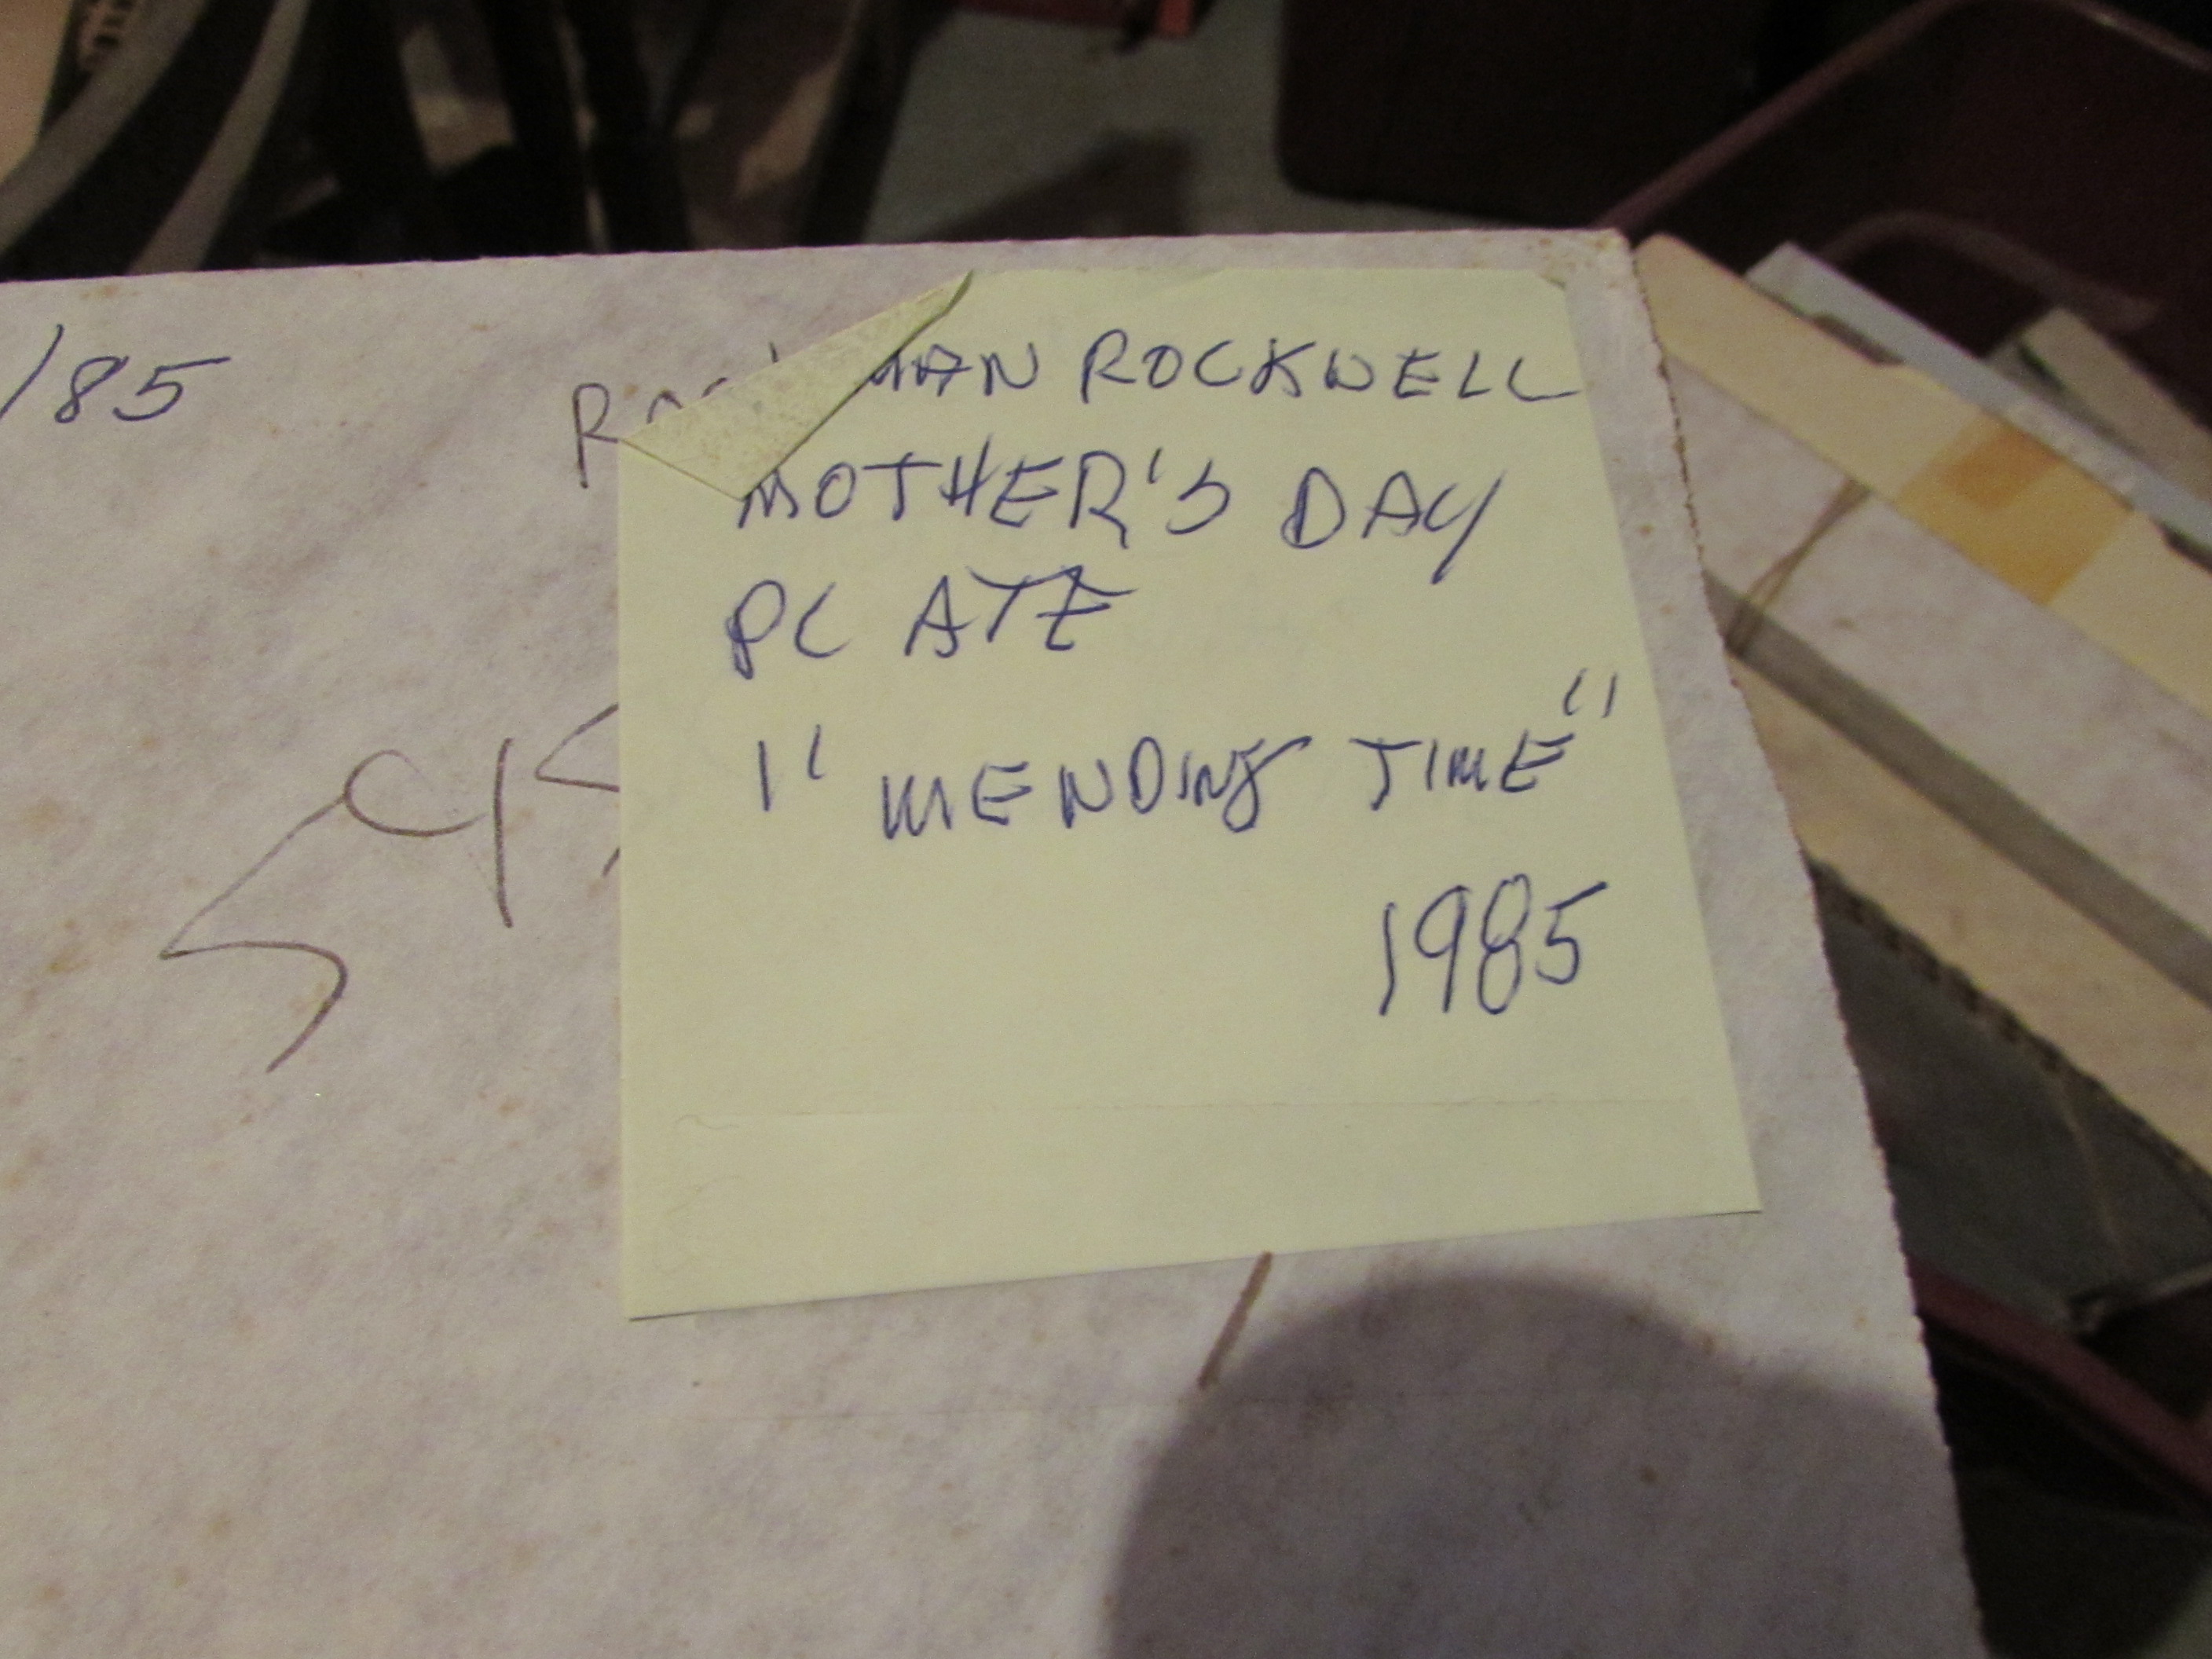 /85
MAN ROCKWELL
MOTHER'S DAY
PLATE
"MENDING TIME"
1985